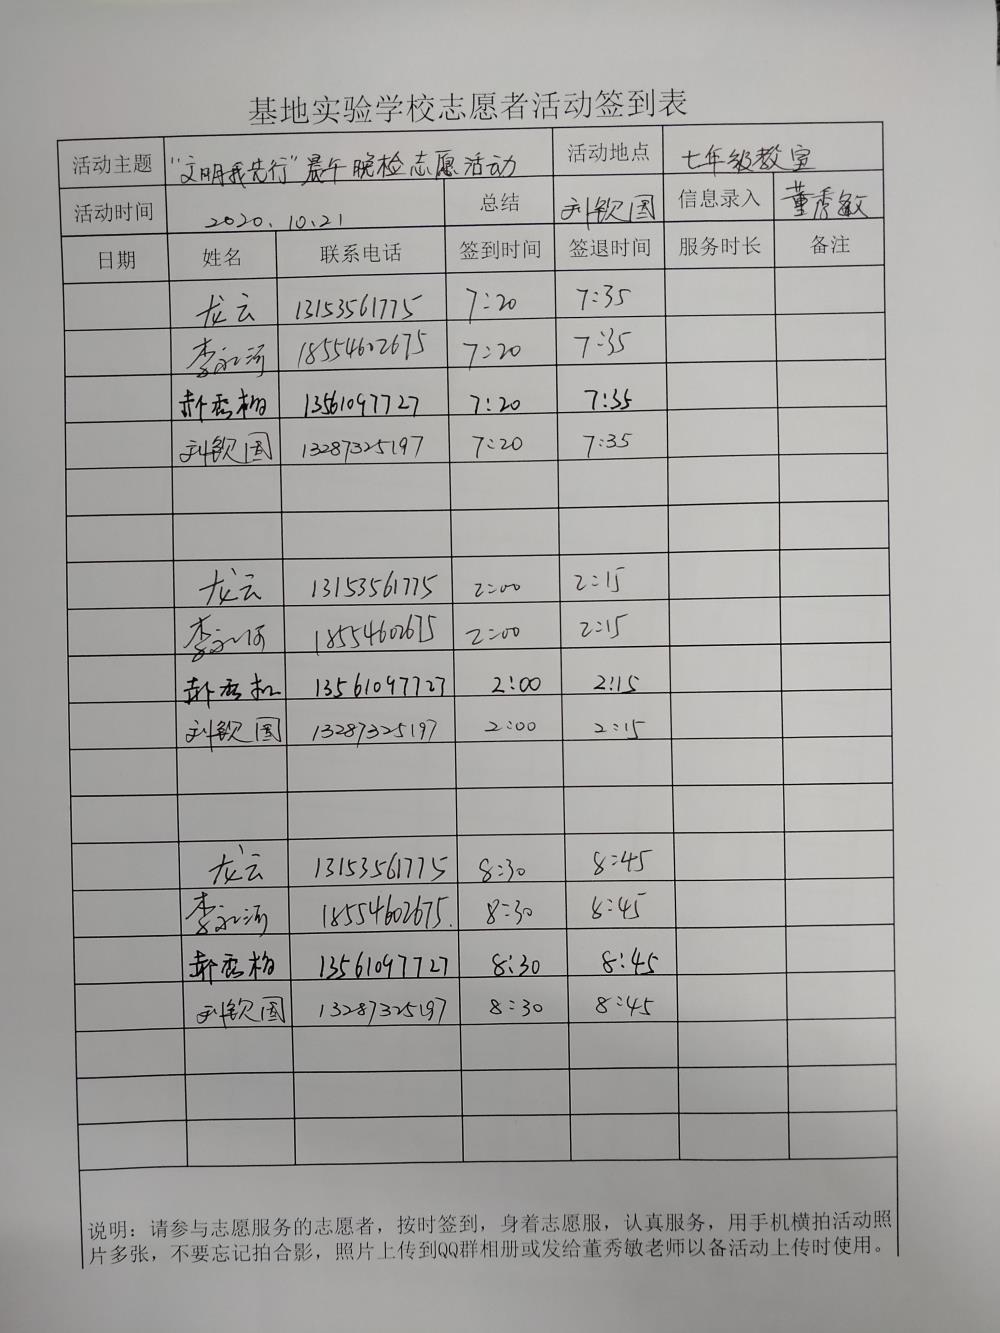 基地实验学校志愿者活动签到表
活动主题 "文明我先行"晨午晚检志愿活动 活动地点 七年级教室
活动时间 2020.10.21 总结 刘钦国 信息录入 董秀敏
日期 姓名 联系电话 签到时间 签退时间 服务时长 备注
龙云 13153561775 7:20 7:35
李永河 18554602675 7:20 7:35
13561097727 7:20 7:35
刘钦国 13287325197 7:20 7:35
龙云 13153561775 2:00 2:15
李永河 18554602675 2:00 2:15
13561097727 2:00 2:15
刘钦国 13287325197 2:00 2:15
龙云 13153561775 8:30 8:45
李永河 18554602675. 8:30 8:45
13561097727 8:30 8:45
刘钦国 13287325197 8:30 8:45
说明：请参与志愿服务的志愿者，按时签到，身着志愿服，认真服务，用手机横拍活动照
片多张，不要忘记拍合影，照片上传到QQ群相册或发给董秀敏老师以备活动上传时使用。